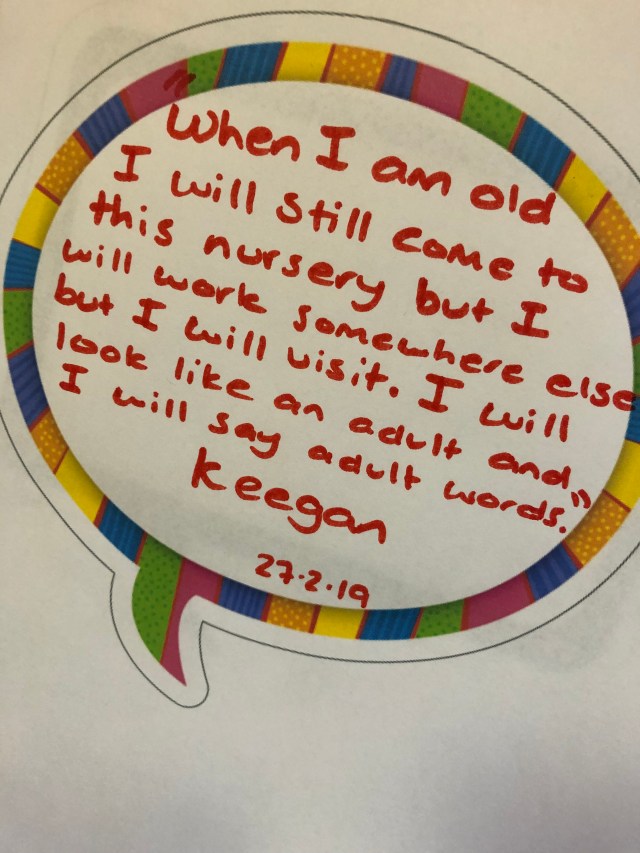 "When I am old
I will still come to
this nursery but I
will work somewhere else
but I will visit. I will
look like an adult and
I will say adult words."
Keegan
27.2.19